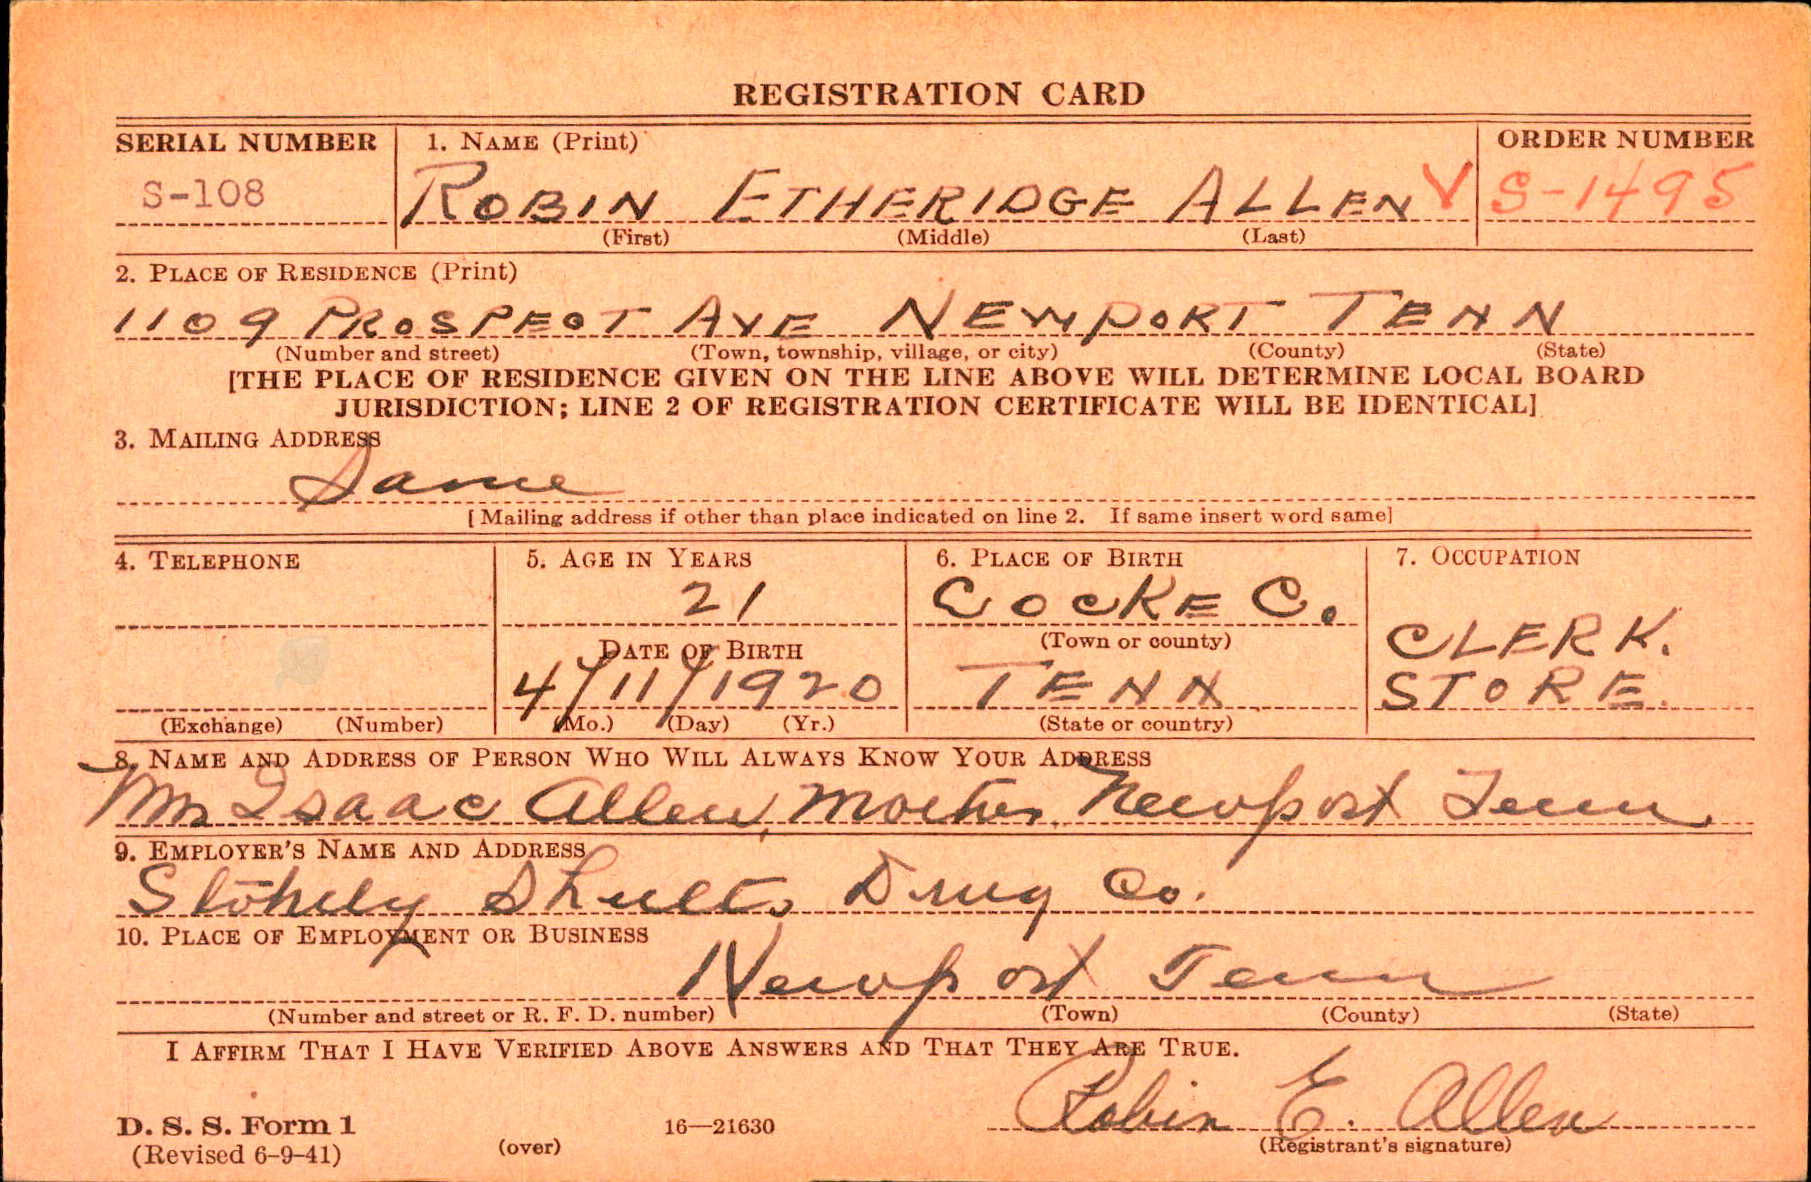 REGISTRATION CARD
SERIAL NUMBER 1. NAME (Print) ORDER NUMBER
S-108 ROBIN ETHERIDGE ALLEN V S-1495
(First) (Middle) (Last)
2. PLACE OF RESIDENCE (Print)
1109 PROSPECT AVE NEWPORT TENN
(Number and street) (Town, township, village, or city) (County) (State)
[THE PLACE OF RESIDENCE GIVEN ON THE LINE ABOVE WILL DETERMINE LOCAL BOARD
JURISDICTION; LINE 2 OF REGISTRATION CERTIFICATE WILL BE IDENTICAL]
3. MAILING ADDRESS
Same
[Mailing address if other than place indicated on line 2. If same insert word same]
4. TELEPHONE 5. AGE IN YEARS 6. PLACE OF BIRTH 7. OCCUPATION
21 COCKE Co.
DATE OF BIRTH (Town or county) CLERK.
4/11/1920 TENN STORE.
(Exchange) (Number) (Mo.) (Day) (Yr.) (State or country)
8. NAME AND ADDRESS OF PERSON WHO WILL ALWAYS KNOW YOUR ADDRESS
Isaac Allen, Mother, Newport Tenn
9. EMPLOYER'S NAME AND ADDRESS
Stokely Shults Drug Co.
10. PLACE OF EMPLOYMENT OR BUSINESS
Newport Tenn
(Number and street or R. F. D. number) (Town) (County) (State)
I AFFIRM THAT I HAVE VERIFIED ABOVE ANSWERS AND THAT THEY ARE TRUE.
Robin E. Allen
D. S. S. Form 1 16—21630
(Revised 6-9-41) (over) (Registrant's signature)